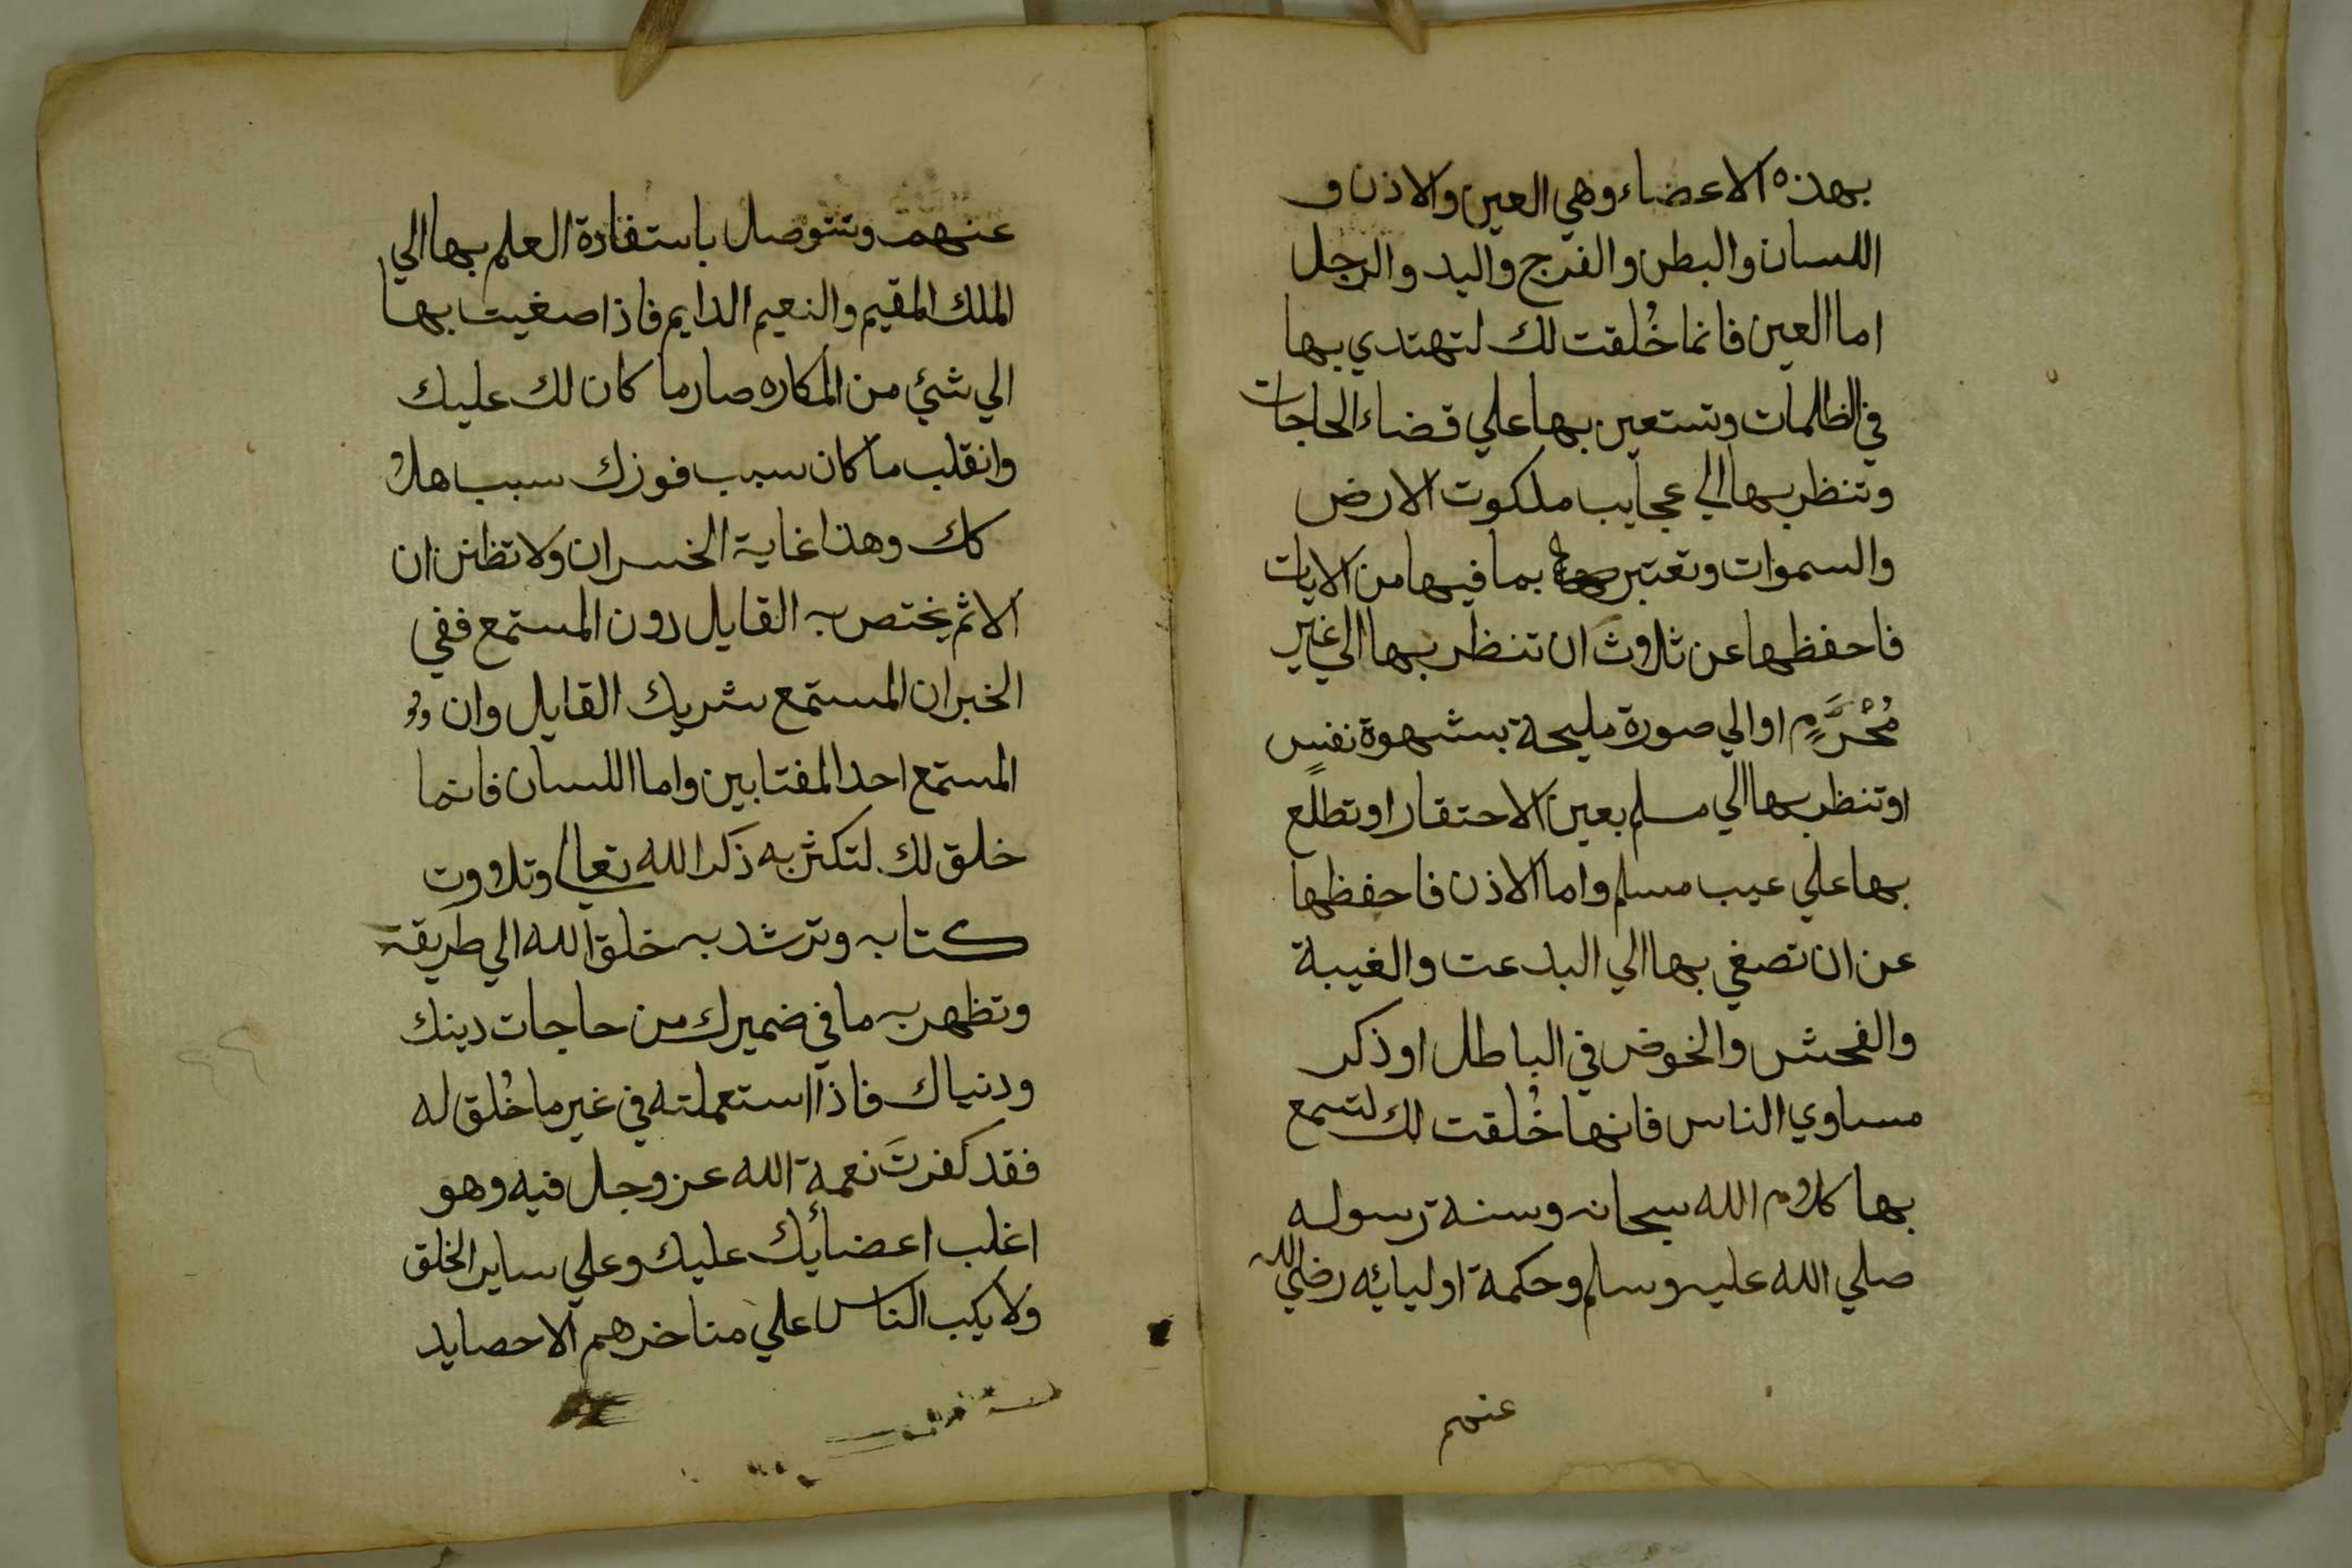 بهذه الاعضاء وهي العين والاذن و
اللسان والبطن والفرج واليد والرجل
اما العين فانما خُلقت لك لتهتدي بها
في الظلمات وتستعين بها علي قضاء الحاجات
وتنظر بها الي عجايب ملكوت الارض
والسموات وتعتبر بما فيها من الايات
فاحفظها عن ثلاوث ان تنظر بها الي غير
مُحْرَّمٍ او الي صورة مليحة بشهوة نفسٍ
او تنظر بها الي مسلم بعين الاحتقار او تطلع
بها علي عيب مسلم واما الاذن فاحفظها
عن ان تصغي بها الي البدعت والغيبة
والفحش والخوض في الباطل او ذكر
مساوي الناس فانها خُلقت لك لتسمع
بها كلام الله سبحانه وسنة رسوله
صلي الله عليه وسلم وحكمة اوليائه رضي الله
عنهم
عنهم وتتوصل باستفادة العلم بها الي
الملك المقيم والنعيم الدايم فاذا صغيت بها
الي شئ من المكاره صار ما كان لك عليك
وانقلب ما كان سبب فوزك سبب هلا
كك وهذا غاية الخسران ولا تظنن ان
الاثم يختص به القايل دون المستمع ففي
الخبر ان المستمع شريك القايل وان
المستمع احد المغتابين واما اللسان فانما
خلق لك لتكثر به ذكر الله تعالي وتلاوت
كتابه وترشد به خلق الله الي طريقة
وتظهر به ما في ضميرك من حاجات دينك
ودنياك فاذا استعملته في غير ما خُلق له
فقد كفرتَ نعمة الله عز وجل فيه وهو
اغلب اعضائك عليك وعلي ساير الخلق
ولا يكب الناس علي مناخرهم الا حصايد